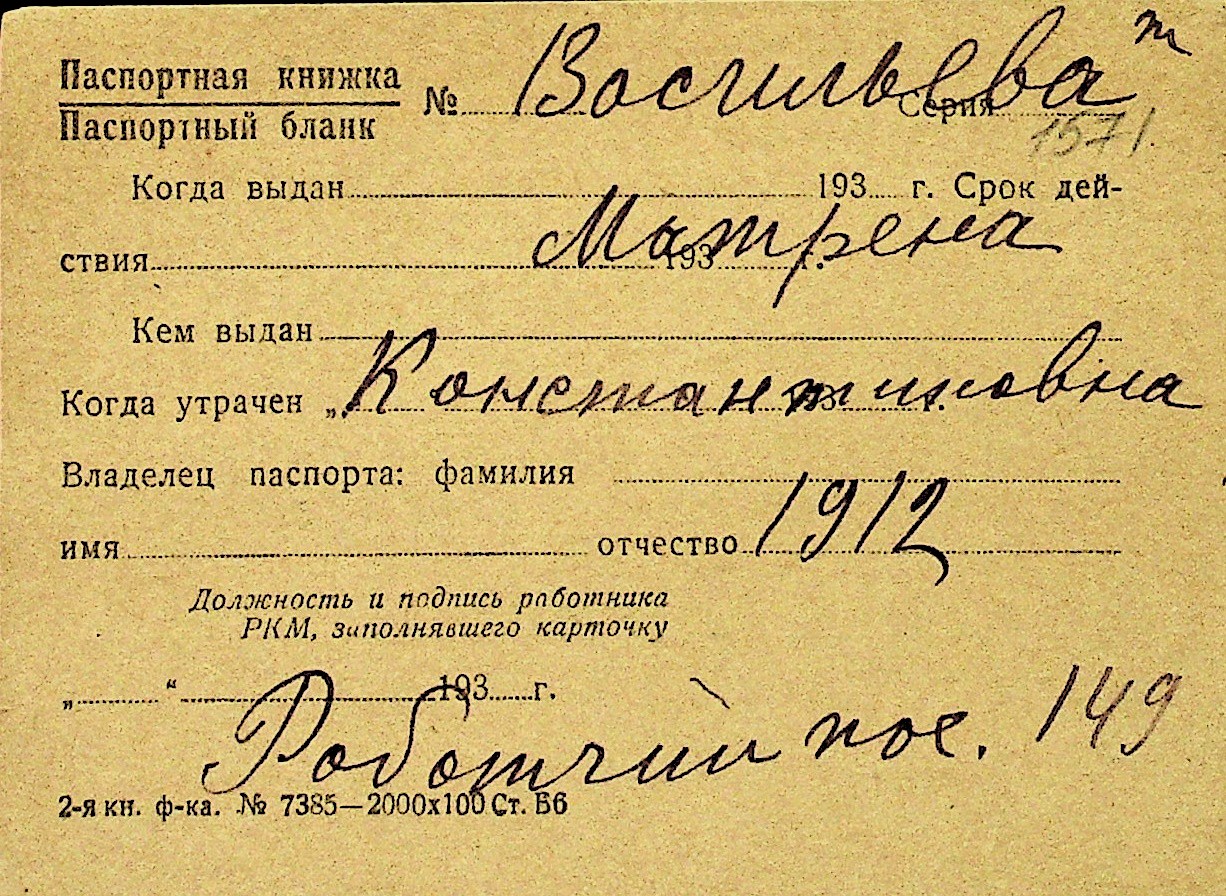 Паспортная книжка
Паспортный бланк
№ Васильева Серия т
1571.
Когда выдан 193 г. Срок дей-
ствия 193 г.
Матрена
Кем выдан
Когда утрачен „ 193 г.
Константиновна
Владелец паспорта: фамилия
имя отчество
1912
Должность и подпись работника
РКМ, заполнявшего карточку
„ “ 193 г.
Работчий пос. 149
2-я кн. ф-ка. № 7385—2000х100 Ст. Б6